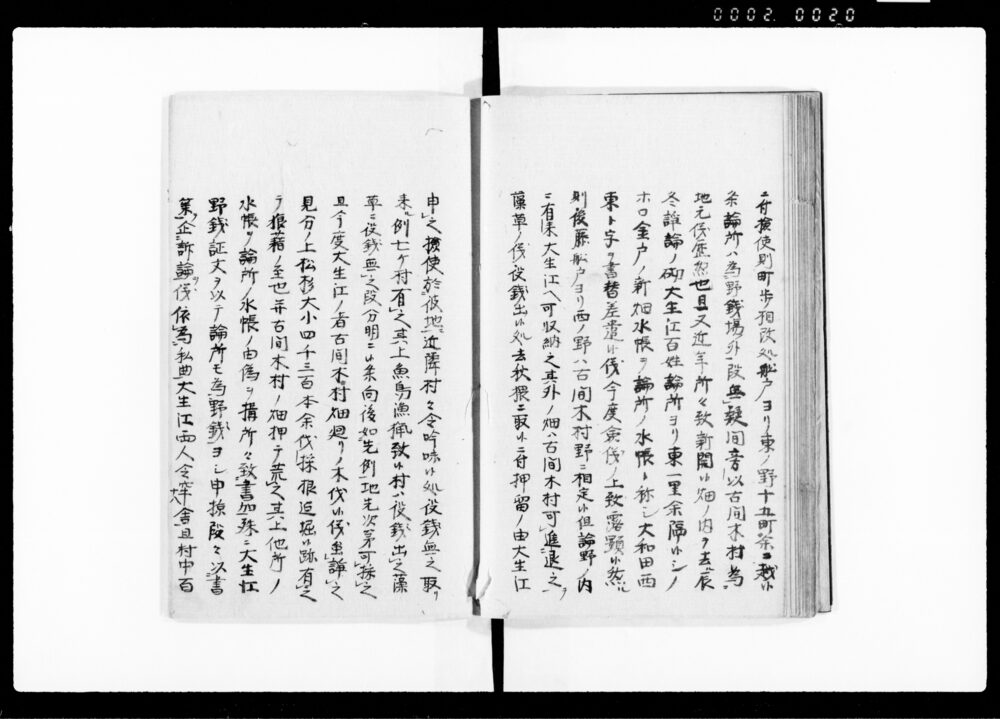 0002 0020
ニ付検使則町歩相改処舩戸ヨリ東ノ野十五町余ヲ越ㇾ
条論所ハ為野銭場外段無疑间旁以古间木村為
地元儀歴然也且又近年所々致新開候畑ノ内ヲ去辰
冬諍論ノ砌大生江百姓論所ヨリ東一里余隔候シノ
ホロ金戸ノ新畑水帳ヲ論所ノ水帳ト称シ大和田西
東ト字ヲ書替差遣候儀今度僉儀ノ上致露顕候然ハ
則後藤舩戸ヨリ西ノ野ハ古间木村野ニ相定候但論野ノ内
ニ有来大生江ヘ可収納之其外ノ畑ハ古间木村可進退之
藻草ノ儀役銭出候処去秋猥ニ取候ニ付押留ノ由大生江
申之検使於彼地近隣村々令吟味候処役銭無之取
来例七ケ村有之其上魚鳥漁猟致候村ハ役銭出之藻
草ニ役銭無之段分明ニ候条向後如先例地先次第可採之
且今度大生江ノ者古间木村畑廻リノ木伐候儀雖諍之
見分ノ上松杉大小四千三百本余伐採根迄堀候跡有之
テ狼藉ノ至也并古间木村ノ畑押テ荒之其上他所ノ
水帳ヲ論所ノ水帳ノ由偽ヲ搆所々致書加殊ニ大生江
野銭ノ証文ヲ以テ論所モ為野銭ヨシ申掠段々以書
策企訴論儀依為私曲大生江両人令牢舎且村中百